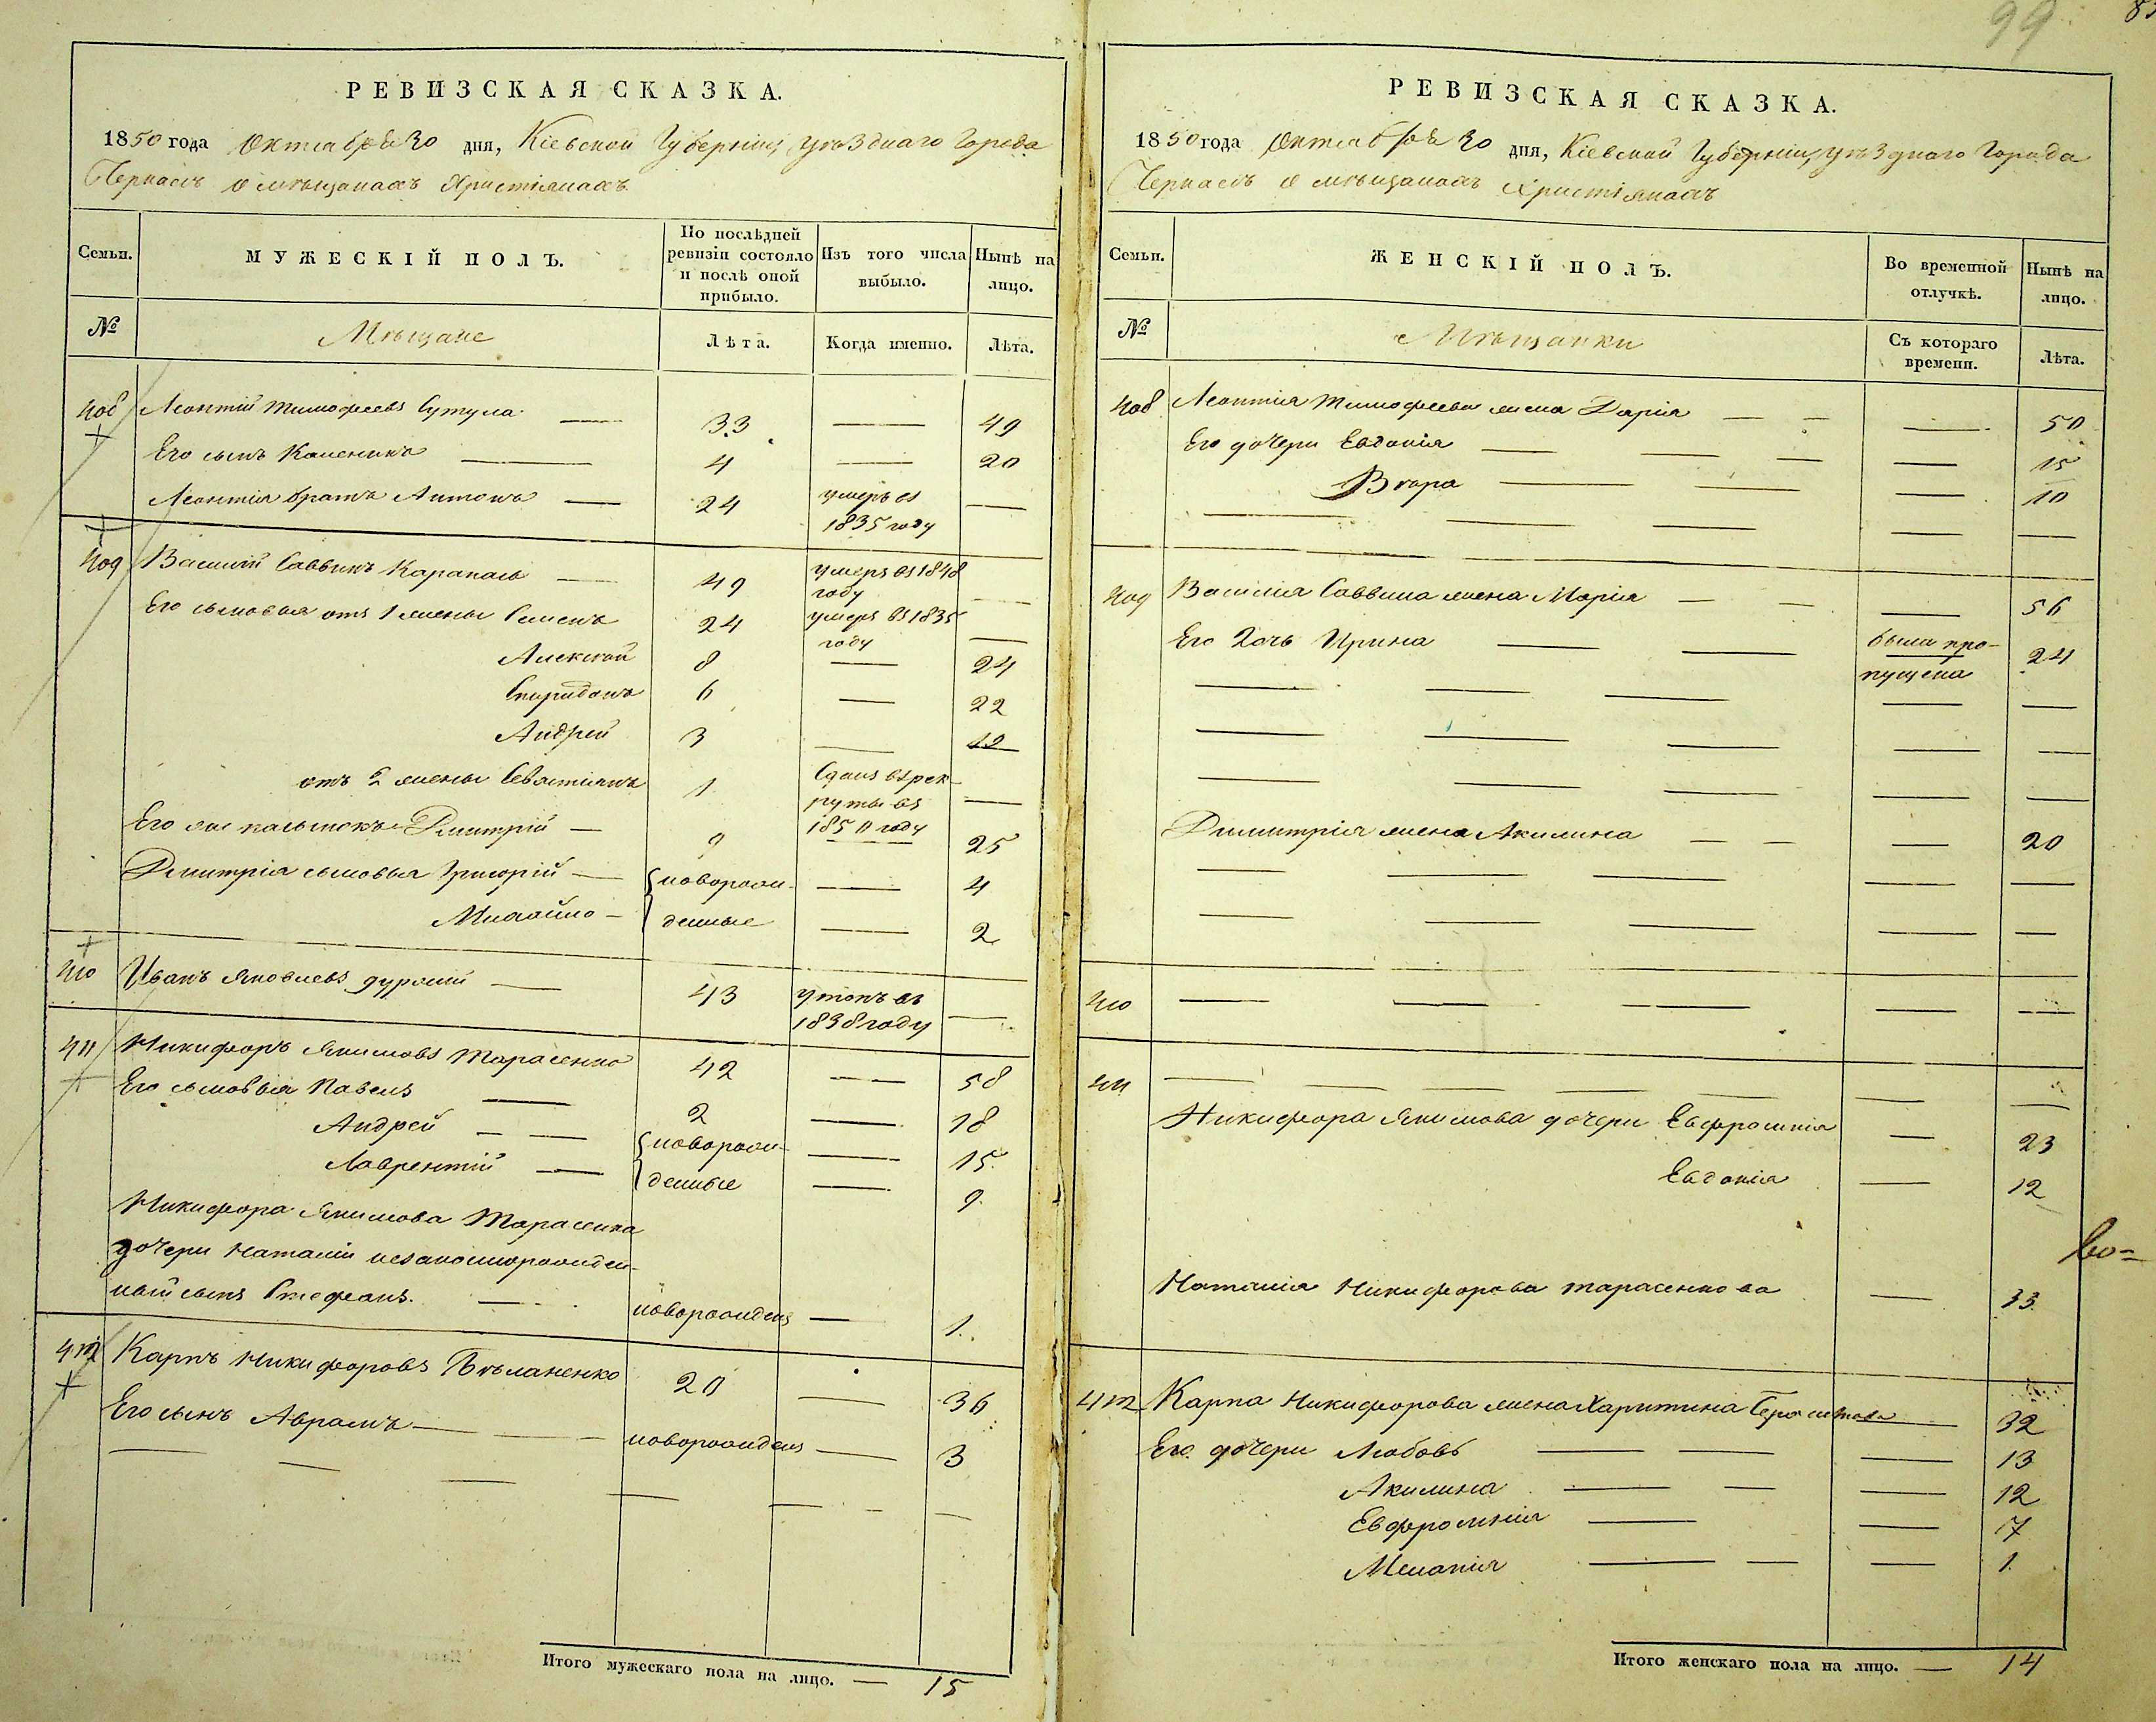 99
83
РЕВИЗСКАЯ СКАЗКА.
1850 года Октября 30 дня, Кіевской Губерніи уѣзднаго Города
Черкасъ о мѣщанахъ Христіянахъ
Семьи.
МУЖЕСКІЙ ПОЛЪ.
По послѣдней ревизіи состояло и послѣ оной прибыло.
Изъ того числа выбыло.
Нынѣ на лицо.
№
Мѣщане
Лѣта.
Когда именно.
Лѣта.
408 Леонтій Тимофеевъ Сутула — 33 — 49
Его сынъ Калениикъ — 4 — 20
Леонтія братъ Антонъ — 24 умеръ въ —
1835 году
409 Василій Саввинъ Карапась — 49 умеръ въ 1848
году —
Его сыновья отъ 1 жены Семенъ 24 умеръ въ 1835
году —
Алексѣй 8 — 24
Спиридонъ 6 — 22
Андрей 3 — 19
отъ 2 жены Севастіянъ 1 Сданъ въ рек-
руты въ —
1850 году
Его же пасынокъ Дмитрій — 9 — 25
Дмитрія сыновья Григорій — новорож- — 4
Михайло — денные — 2
410 Иванъ Яковлевъ дурный — 43 утопъ въ
1838 году —
411 Никифоръ Якимовъ Тарасенко 42 — 58
Его сыновья Павелъ — 2 — 18
Андрей — — новорож- — 15
Лаврентій — денные — 9
Никифора Якимова Тарасенка
дочери Наталіи незаконнорожден-
ный сынъ Стефанъ. — новорожденъ — 1.
412 Карпъ Никифоровъ Бѣланенко 20 — 36
Его сынъ Аврамъ — новорожденъ — 3
Итого мужескаго пола на лицо. — 15
РЕВИЗСКАЯ СКАЗКА.
1850 года Октября 30 дня, Кіевской Губерніи уѣзднаго Города
Черкасъ о мѣщанахъ Христіянахъ
Семьи.
ЖЕНСКІЙ ПОЛЪ.
Во временной отлучкѣ.
Нынѣ на лицо.
№
Мѣщанки
Съ котораго времени.
Лѣта.
408 Леонтія Тимофеева жена Дарія — — — 50
Его дочери Евдокія — — — — 15
Вѣра — — — 10
409 Василія Саввина жена Марія — — — 56
Его Дочь Ирина — — была про- 24
пущена
Димитрія жена Акилина — — — 20
410 — — — — —
411 — — — — —
Никифора Якимова дочери Евфросинія — 23
Евдокія — 12
Во=
Наталія Никифорова Тарасенкова — 33
412 Карпа Никифорова жена Харитина Герасимова — 32
Его дочери Любовь — — — 13
Акилина — — — 12
Евфросинія — — 7
Меланія — — — 1
Итого женскаго пола на лицо. — 14